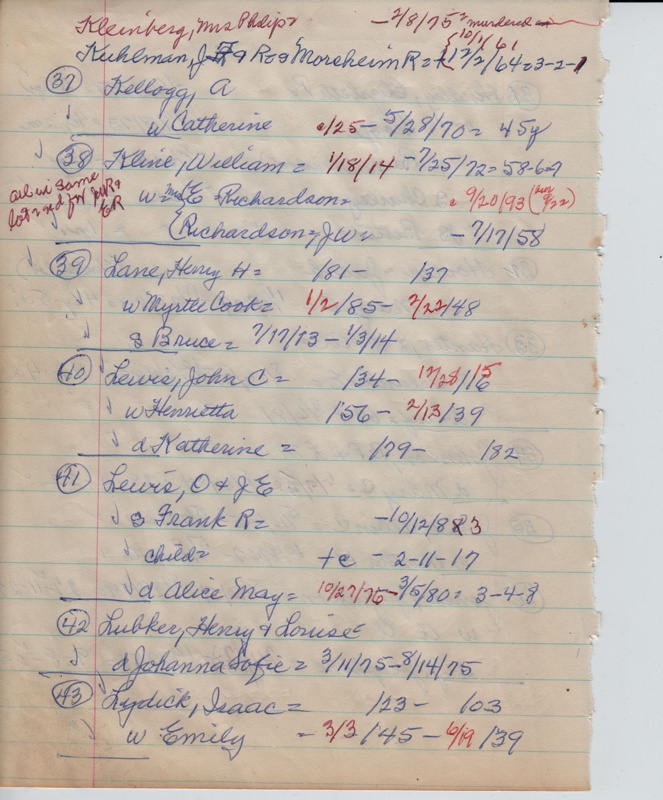 Kleinberg, Mrs Philip = - 2/8/75 = murdered
10/1/61
Kuhlman, J & Ro & Morsheim R = 12/2/64 = 3-2-1
37 Kellogg, A
w Catherine c/25 - 5/28/70 = 45y
38 Kline, William = 1/18/14 - 7/25/72 = 58-6-7
all in same
lot = W & JWR &
ER
w = Mrs E = Richardson = c 9/20/93 (9/22)
(Richardson = JW = - 7/17/58
39 Lane, Henry H = /81 - /37
w Myrtle Cook = 1/2/85 - 2/22/48
s Bruce = 7/17/13 - 1/3/14
40 Lewis, John C = /34 - 12/28/15
w Henrietta /56 - 2/13/39
d Katherine = /79 - /82
41 Lewis, O & J E
s Frank R = - 10/12/883
child = + c - 2-11-17
d Alice May = 10/27/76 - 3/5/80 = 3-4-8
42 Lubker, Henry & Louise =
d Johanna Sofie = 3/11/75 - 8/14/75
43 Lydick, Isaac = /23 - /03
w Emily = 3/3/45 - 6/19/39